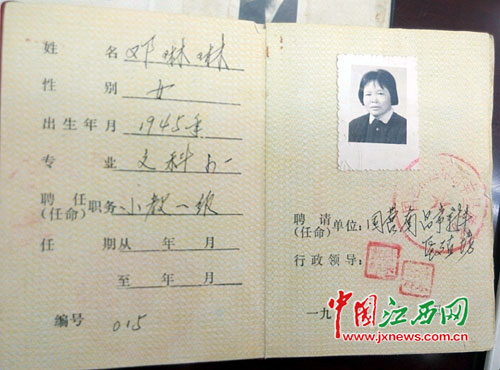 姓名 邓琳琳
性别 女
出生年月 1945年
专业 文科
聘任(任命)职务 小教一级
任期从 年 月
至 年 月
编号 015
聘请(任命)单位: 国营南昌市
行政领导:
一九
中国江西网
www.jxnews.com.cn